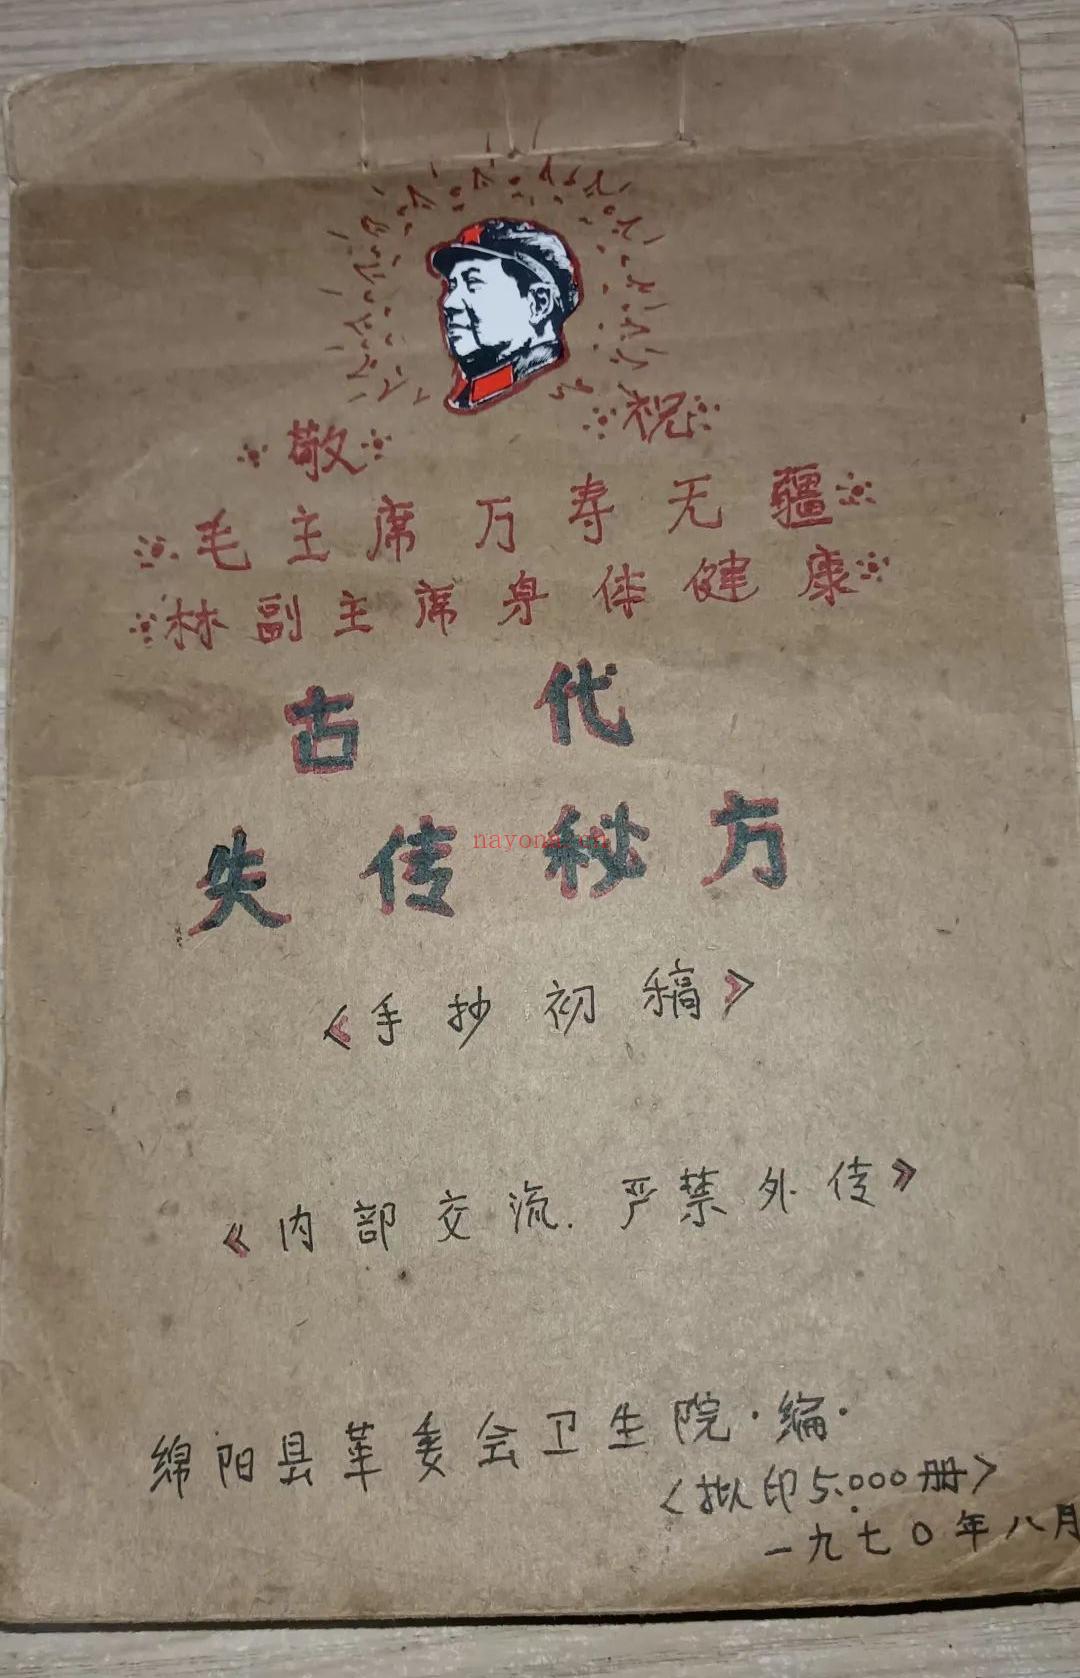 敬 祝
毛主席万寿无疆
林副主席身体健康
古代
失传秘方
nayona.cn
《手抄初稿》
《内部交流.严禁外传》
绵阳县革委会卫生院·编·
<拟印5.000册>
一九七〇年八月